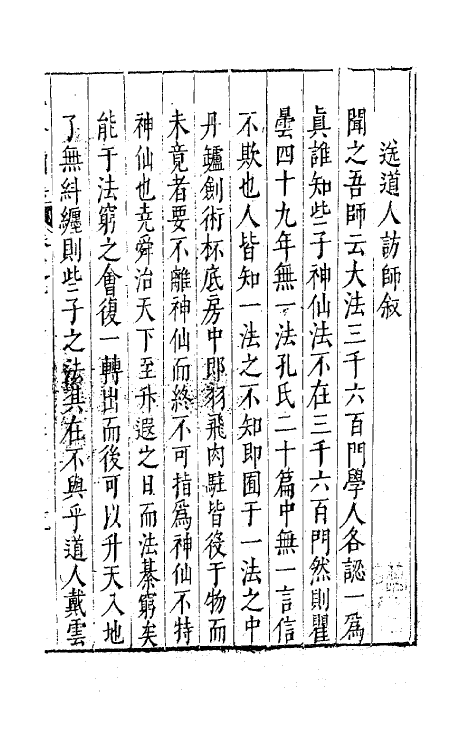 送道人訪師叙
聞之吾師云大法三千六百門學人各認一爲
眞誰知些子神仙法不在三千六百門然則瞿
曇四十九年無一法孔氏二十篇中無一言信
不欺也人皆知一法之不知即囿于一法之中
丹鑪創術杯底房中即羽飛肉駐皆後于物而
未竟者要不離神仙而終不可指爲神仙不特
神仙也堯舜治天下至升遐之日而法綦窮矣
能于法窮之會復一轉出而後可以升天入地
了無糾纏則些子之法其在不與乎道人戴雲